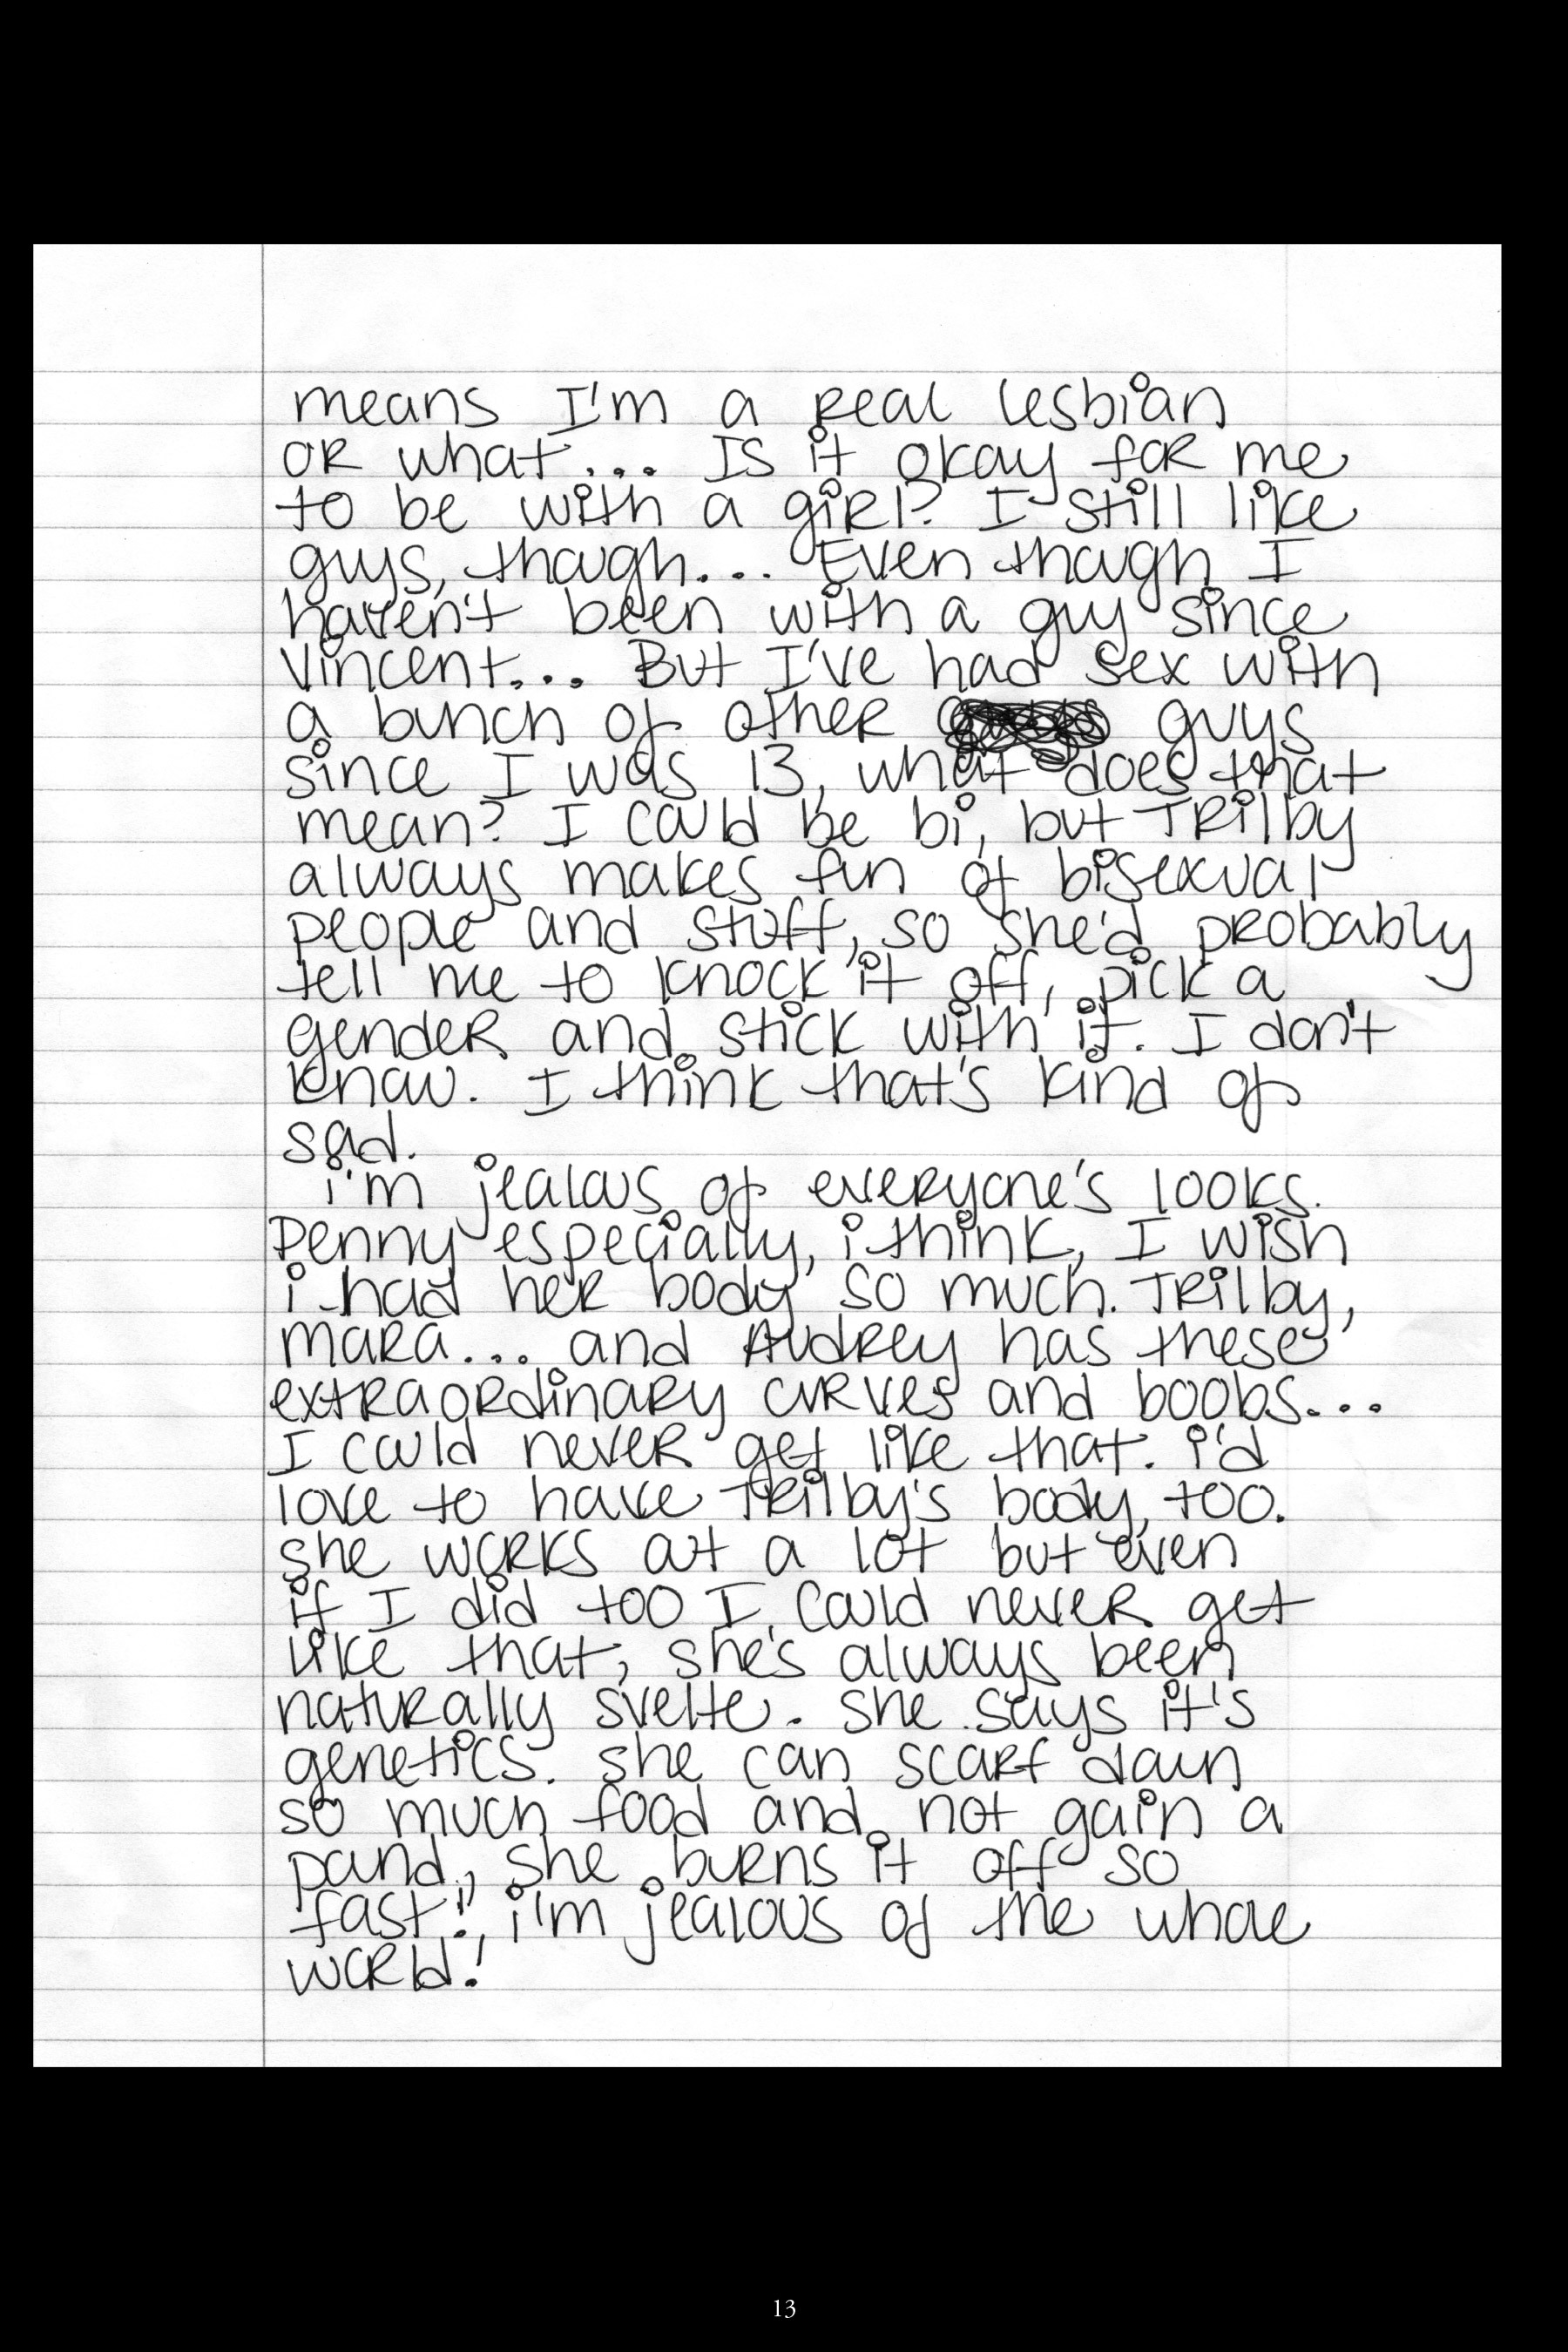 means I'm a real lesbian
or what... Is it okay for me
to be with a girl? I still like
guys, though... Even though I
haven't been with a guy since
Vincent... But I've had sex with
a bunch of other guys
since I was 13, what does that
mean? I could be bi, but Trilby
always makes fun of bisexual
people and stuff, so she'd probably
tell me to knock it off, pick a
gender and stick with it. I don't
know. I think that's kind of
sad.
i'm jealous of everyone's looks.
Penny especially, i think, I wish
i had her body so much. Trilby,
Mara... and Audrey has these
extraordinary curves and boobs...
I could never get like that. i'd
love to have Trilby's body, too.
she works out a lot but even
if I did too I could never get
like that, she's always been
naturally svelte. she says it's
genetics. she can scarf down
so much food and not gain a
pound, she burns it off so
fast!, i'm jealous of the whole
world!
13